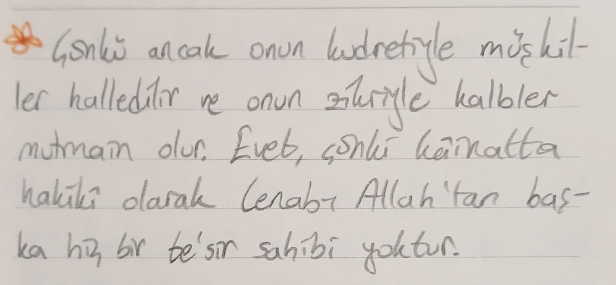 Çünkü ancak onun kudretiyle müşkil-
ler halledilir ve onun zikriyle kalbler
mutmain olur. Evet, çünki kâinatta
hakiki olarak Cenab-ı Allah'tan baş-
ka hiç bir te'sir sahibi yoktur.